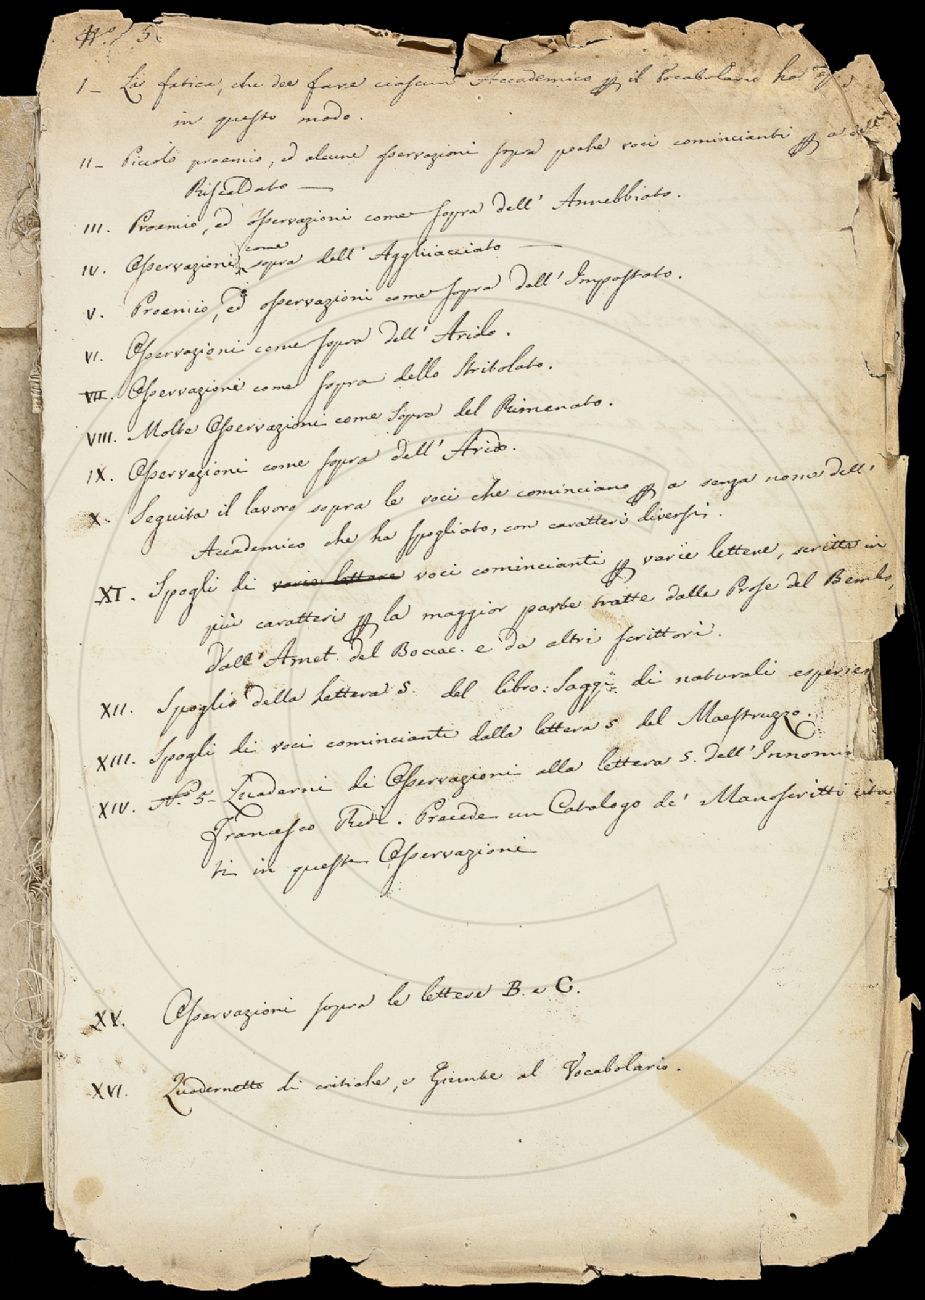 N.º 5
I – La fatica, che dee fare ciascun Accademico p il Vocabolario ha
in questo modo.
II – Picciol proemio, ed alcune osservazioni sopra poche voci comincianti p a dell
Riscaldato —
III. Proemio, ed osservazioni come sopra dell' Annebbiato.
IV. Osservazioni come sopra dell' Agghiacciato —
V. Proemio, ed osservazioni come sopra dell' Impastato.
VI. Osservazioni come sopra dell' Arido.
VII. Osservazioni come sopra dello Stritolato.
VIII. Molte Osservazioni come sopra del Rimenato.
IX. Osservazioni come sopra dell' Arido.
X. Seguita il lavoro sopra le voci che cominciano p a senza nome dell'
Accademico che ha spogliato, con caratteri diversi.
XI. Spogli di varie lettere voci comincianti p varie lettere, scritte in
più caratteri p la maggior parte tratte dalle Prose del Bembo,
dall' Amet. del Boccac. e da altri scrittori.
XII. Spoglio della lettera S. del libro: Saggi di naturali esperien
XIII. Spogli di voci comincianti dalla lettera S del Maestruzzo.
XIV. N.º 5 – Quaderni di Osservazioni alla lettera S. dell' Innomin
Francesco Redi. Precede un Catalogo de' Manoscritti cita-
ti in queste Osservazioni
XV. Osservazioni sopra le lettere B. e C.
XVI. Quadernetto di critiche, e Giunte al Vocabolario.